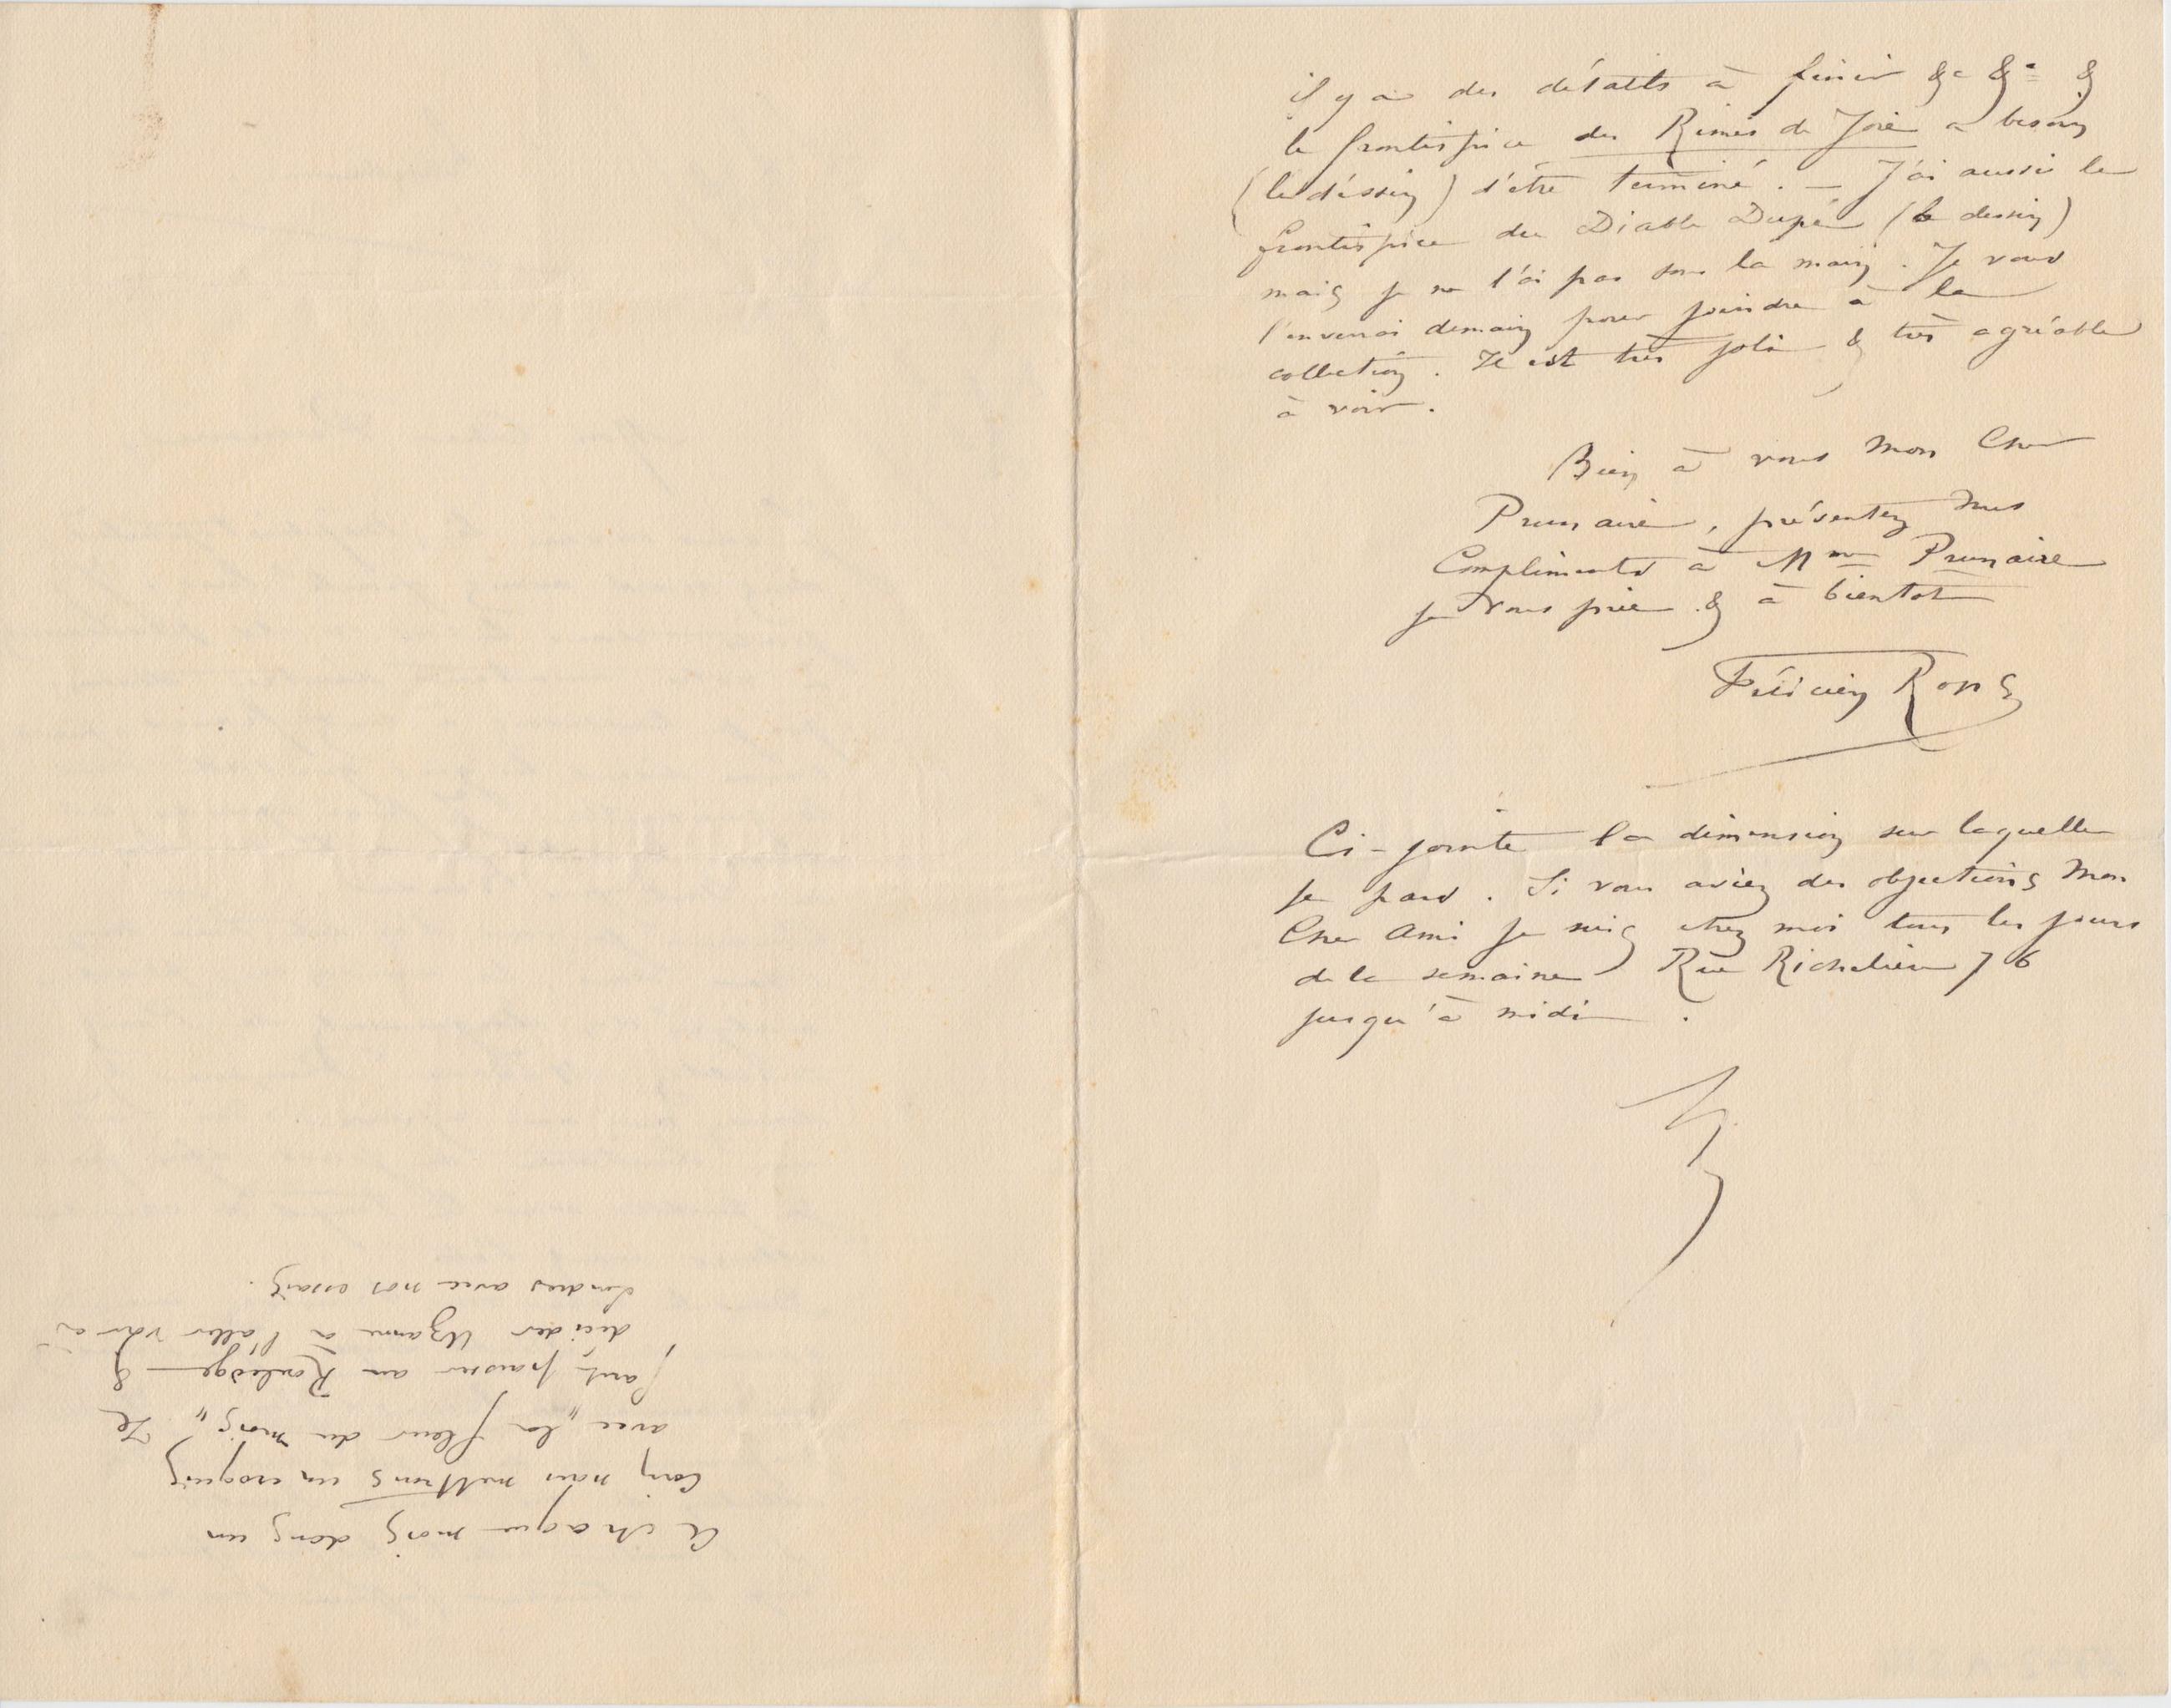 il y a des détails à finir &c &c &
le frontispice des Rimes de Joie a besoin
(le dessin) d'être terminé. — J'ai aussi le
frontispice du Diable Dupé (le dessin)
mais je ne l'ai pas sous la main. Je vous
l'enverrai demain pour joindre à la
collection. Il est très joli & très agréable
à voir.
Bien à vous mon Cher
Prunaire, présentez mes
Compliments à Mme Prunaire
je vous prie & à bientot
Félicien Rops
Ci-jointe la dimension sur laquelle
je pars. Si vous aviez des objections Mon
Cher Ami je suis chez moi tous les jours
de la semaine Rue Richelieu 76
jusqu'à midi.
A chaque mois dans un
coin nous mettrons un croquis
avec „la fleur du mois". Il
faut passer au Rouledge &
décider Uzanne à l'aller voir à
Londres avec nos essais.